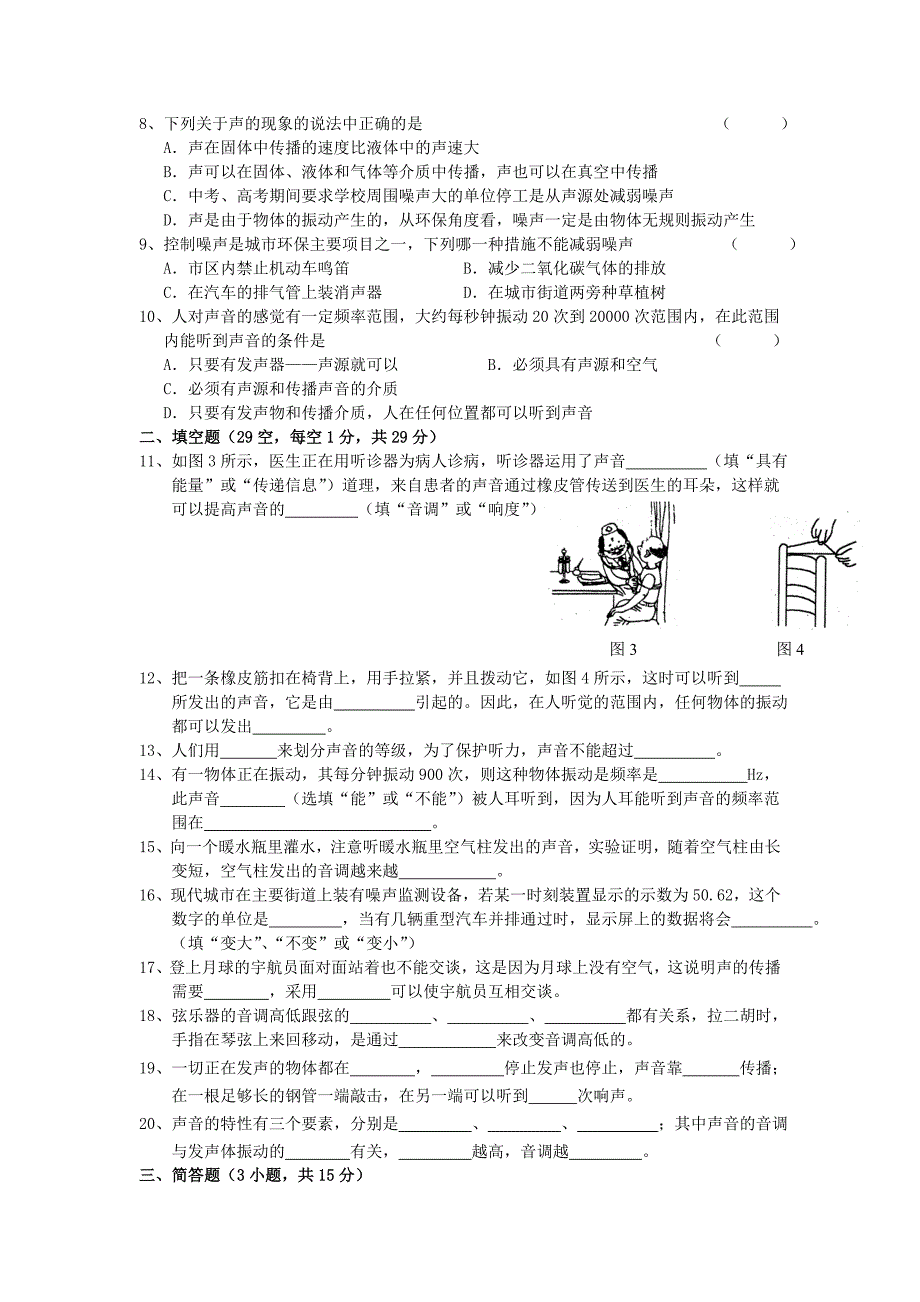 8、下列关于声的现象的说法中正确的是 （ ）
A．声在固体中传播的速度比液体中的声速大
B．声可以在固体、液体和气体等介质中传播，声也可以在真空中传播
C．中考、高考期间要求学校周围噪声大的单位停工是从声源处减弱噪声
D．声是由于物体的振动产生的，从环保角度看，噪声一定是由物体无规则振动产生
9、控制噪声是城市环保主要项目之一，下列哪一种措施不能减弱噪声 （ ）
A．市区内禁止机动车鸣笛 B．减少二氧化碳气体的排放
C．在汽车的排气管上装消声器 D．在城市街道两旁种草植树
10、人对声音的感觉有一定频率范围，大约每秒钟振动20次到20000次范围内，在此范围
内能听到声音的条件是 （ ）
A．只要有发声器——声源就可以 B．必须具有声源和空气
C．必须有声源和传播声音的介质
D．只要有发声物和传播介质，人在任何位置都可以听到声音
二、填空题（29空，每空1分，共29分）
11、如图3所示，医生正在用听诊器为病人诊病，听诊器运用了声音__________（填“具有
能量”或“传递信息”）道理，来自患者的声音通过橡皮管传送到医生的耳朵，这样就
可以提高声音的_________（填“音调”或“响度”）
图3 图4
12、把一条橡皮筋扣在椅背上，用手拉紧，并且拨动它，如图4所示，这时可以听到_____
所发出的声音，它是由__________引起的。因此，在人听觉的范围内，任何物体的振动
都可以发出_________。
13、人们用_______来划分声音的等级，为了保护听力，声音不能超过__________。
14、有一物体正在振动，其每分钟振动900次，则这种物体振动是频率是___________Hz，
此声音________（选填“能”或“不能”）被人耳听到，因为人耳能听到声音的频率范
围在____________________________。
15、向一个暖水瓶里灌水，注意听暖水瓶里空气柱发出的声音，实验证明，随着空气柱由长
变短，空气柱发出的音调越来越____________。
16、现代城市在主要街道上装有噪声监测设备，若某一时刻装置显示的示数为50.62，这个
数字的单位是_________，当有几辆重型汽车并排通过时，显示屏上的数据将会__________。
（填“变大”、“不变”或“变小”）
17、登上月球的宇航员面对面站着也不能交谈，这是因为月球上没有空气，这说明声的传播
需要________，采用_________可以使宇航员互相交谈。
18、弦乐器的音调高低跟弦的__________、__________、__________都有关系，拉二胡时，
手指在琴弦上来回移动，是通过____________来改变音调高低的。
19、一切正在发声的物体都在________，_________停止发声也停止，声音靠_______传播；
在一根足够长的钢管一端敲击，在另一端可以听到______次响声。
20、声音的特性有三个要素，分别是_________、_________、__________；其中声音的音调
与发声体振动的________有关，_________越高，音调越_________。
三、简答题（3小题，共15分）